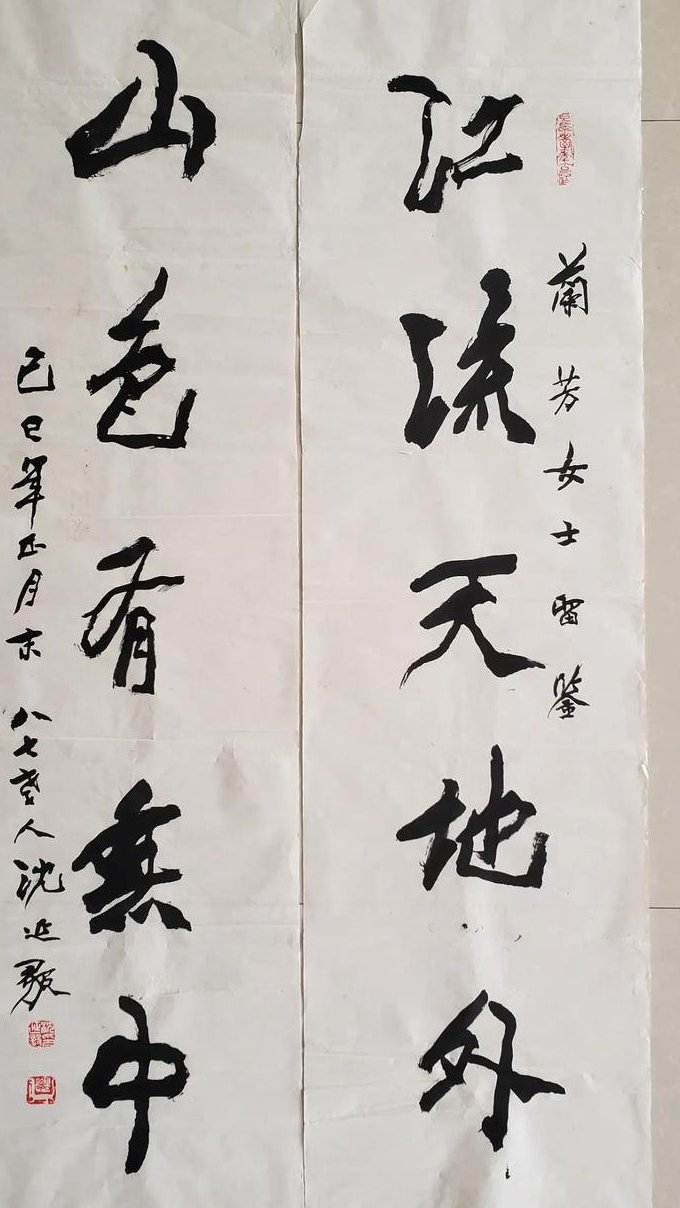 江流天地外
蘭芳女士留鉴
山色有無中
己巳年正月末 八七老人沈延毅